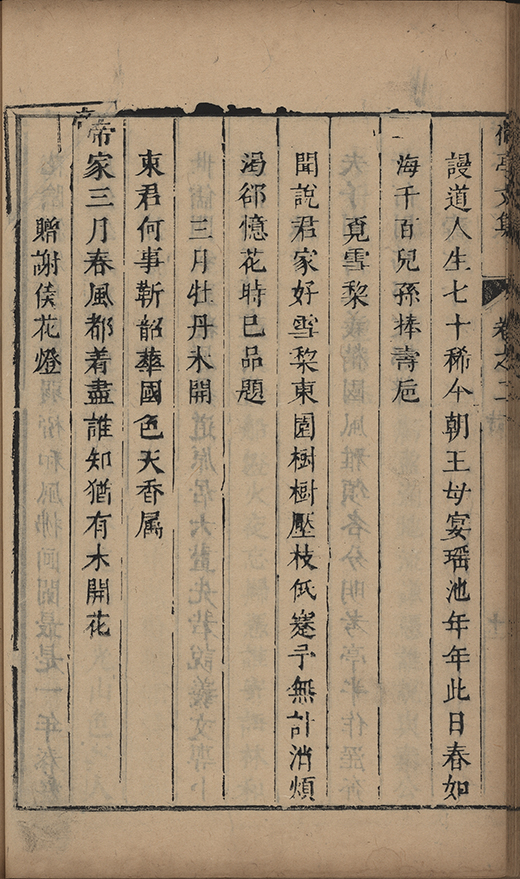 卷之二
謾道人生七十稀今朝王母宴瑶池年年此日春如
海千百兒孫捧壽巵
覓雪棃
聞說君家好雪棃東園樹樹壓枝低蹇予無計消煩
渴郤憶花時已品題
三月牡丹未開
東君何事靳韶華國色天香属
帝家三月春風都着盡誰知猶有未開花
贈謝侯花燈